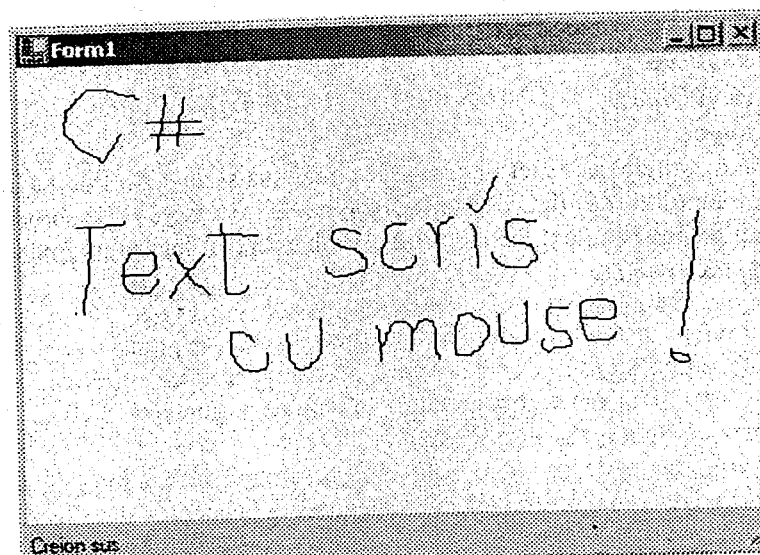 Form1
C#
Text scris
cu mouse!
Creion sus